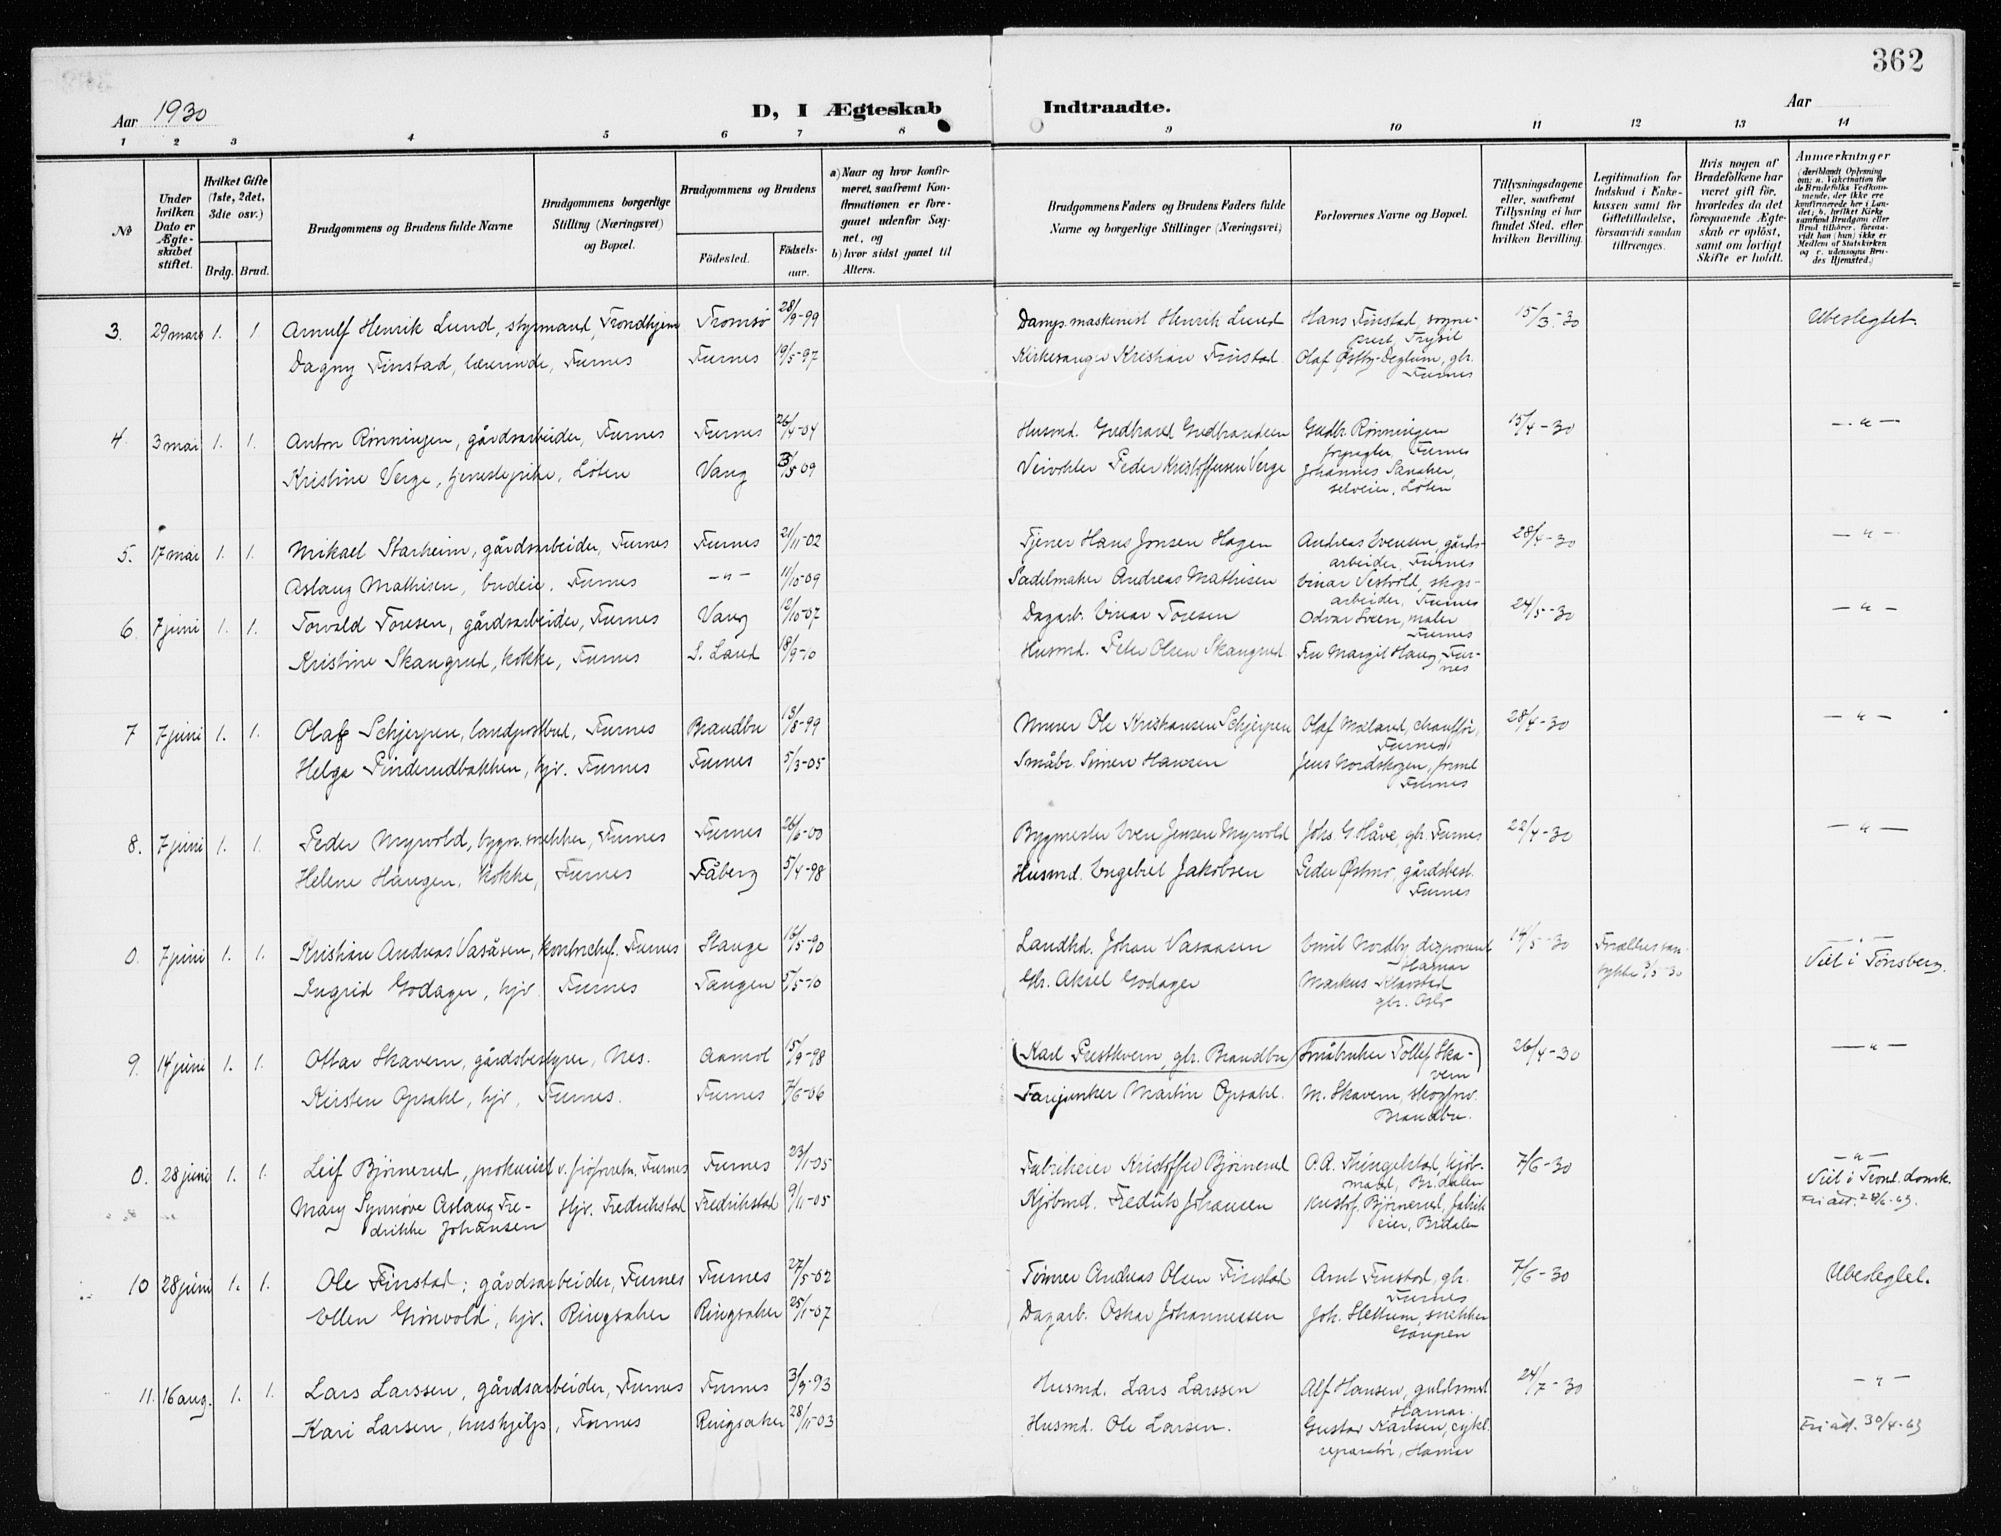 362
Aar 1930
D, I Ægteskab Indtraadte.
Aar
1 2 3 4 5 6 7 8 9 10 11 12 13 14
No
Under hvilken Dato er Ægteskabet stiftet.
Hvilket Gifte (1ste, 2det, 3die osv.)
Brdg. Brud.
Brudgommens og Brudens fulde Navne
Brudgommens borgerlige Stilling (Næringsvei) og Bopæl.
Brudgommens og Brudens
Fødested. Fødselsaar.
a) Naar og hvor konfirmeret, saafremt Konfirmationen er foregaaet udenfor Sognet, og
b) hvor sidst gaaet til Alters.
Brudgommens Faders og Brudens Faders fulde Navne og borgerlige Stillinger (Næringsvei)
Forlovernes Navne og Bopæl.
Tillysningsdagene eller, saafremt Tillysning ei har fundet Sted, efter hvilken Bevilling.
Legitimation for Indskud i Enkekassen samt for Giftetilladelse, forsaavidt saadan tiltrænges.
Hvis nogen af Brudefolkene har været gift før, hvorledes da det foregaaende Ægteskab er opløst, samt om lovligt Skifte er holdt.
Anmærkninger (deriblandt Oplysning om: a. Vakcination for de Brudefolks Vedkommende, der ikke ere konfirmerede her i Landet; b. hvilket Kirkesamfund Brudgom eller Brud tilhører, forsaavidt han (hun) ikke er Medlem af Statskirken og c. udensogns Brudes Hjemsted.)
3. 29 mars 1. 1. Arnulf Henrik Lund, styrmand, Trondhjem Tromsø 28/9-99 Damps.maskinist Henrik Lund Hans Finstad, sogneprest, Trysil 15/3-30 Ubeslegtet.
Dagny Finstad, lærerinde, Furnes Furnes 19/5-97 Kirkesanger Kristian Finstad. Olaf Østby-Deglum, gbr. Furnes
4. 3 mai 1. 1. Anton Rønningen, gårdsarbeider, Furnes Furnes 26/4-04 Husmd. Gudbrand Gudbrandsen Gudbr. Rønningen forpagter, Furnes 15/4-30 -"-
Kristine Verge, tjenestepike, Løten Vang 3/5 09 Veivokter Peder Kristoffersen Verge Johannes Sanaker, selveier, Løten
5. 17 mai 1. 1. Mikael Starheim, gårdsarbeider, Furnes Furnes 21/11-02 Tjener Hans Jonsen Hagen Andreas Evensen, gårdsarbeider, Furnes 28/4-30 -"-
Aslaug Mathisen, budeie, Furnes -"- 11/10-09 Sadelmaker Andreas Mathisen Einar Vestvold, skogsarbeider, Furnes
6. 7 juni 1. 1. Torvald Toresen, gårdsarbeider, Furnes Vang 12/10-07 Dagarb. Einar Toresen Odvar Sveen, maler Furnes 24/5-30 -"-
Kristine Skaugrud, kokke, Furnes S. Land 18/9-10 Husmd. Peter Olsen Skaugrud Fru Margit Haug, Furnes
7 7 juni 1. 1. Olaf Schjerpen, landpostbud, Furnes Brandbu 13/8-99 Murer Ole Kristiansen Schjerpen Olaf Mæland, chauffør, Furnes 28/4-30 -"-
Helga Pinderudbakken, hjv. Furnes Furnes 5/3-05 Småbr. Simen Hansen Jens Nordskogen, formd Furnes
8. 7 juni 1. 1. Peder Myrvold, bygn.snekker, Furnes Furnes 26/6-00 Bygmester Even Jensen Myrvold Johs. G. Håve, gbr. Furnes 22/4-30 -"-
Helene Haugen, kokke, Furnes Fåberg 5/4-98 Husmd. Engebret Jakobsen Peder Østmo, gårdsbest. Furnes
0. 7 juni 1. 1. Kristian Andreas Vasåsen, kontorchef. Furnes Stange 16/5-90 Landhd. Johan Vasaasen Emil Nordby, disponent Hamar 14/5-30 Forældres samtykke 3/5-30 -"- Viet i Tønsberg.
Ingrid Godager, hjv. Furnes Tangen 5/5-10 Gbr. Aksel Godager Markus Klavstad gbr. Oslo
9. 14 juni 1. 1. Ottar Skavern, gårdsbestyrer, Nes. Aamot 15/9-98 (Karl Prestkvern, gbr. Brandbu Småbruker Tollef Skavern) 26/4-30 -"-
Kirsten Opsahl, hjv, Furnes. Furnes 7/6-06 Fanejunker Martin Opsahl. M. Skavern, skogforv. Brandbu.
0. 28 juni 1. 1. Leif Bjørnerud, prokurist v. frøforretn, Furnes Furnes 23/1-05 Fabrikeier Kristoffer Bjørnerud O.A. Thingelstad, kjøbmand, Br.dalen 7/6-30 -"- Viet i Trond. domk. Fri att. 28/6-63.
Mary Synnøve Aslaug Fredrikke Johansen Hjv. Fredrikstad Fredrikstad 9/11-05 Kjøbmd. Fredrik Johansen Kristof. Bjørnerud, fabrikeier, Brdalen
10 28 juni 1. 1. Ole Finstad, gårdsarbeider, Furnes Furnes 27/5-02 Tømrer Andreas Olsen Finstad Arnt Finstad, gbr. Furnes 7/6-30 Ubeslegtet.
Ellen Grønvold, hjv. Ringsaker Ringsaker 25/1-07 Dagarb. Oskar Johannessen Joh. Slettum, snekker Gaupen
11. 16 aug. 1. 1. Lars Larssen, gårdsarbeider, Furnes Furnes 3/9-93 Husmd. Lars Larssen Alf Hansen, guldsmed Hamar. 24/7-30 -"-
Kari Larsen, hushjelp, Furnes Ringsaker 28/11-03 Husmd. Ole Larsen. Gustav Karlsen, cykl.reparatør, Hamar Fri att. 30/4-63